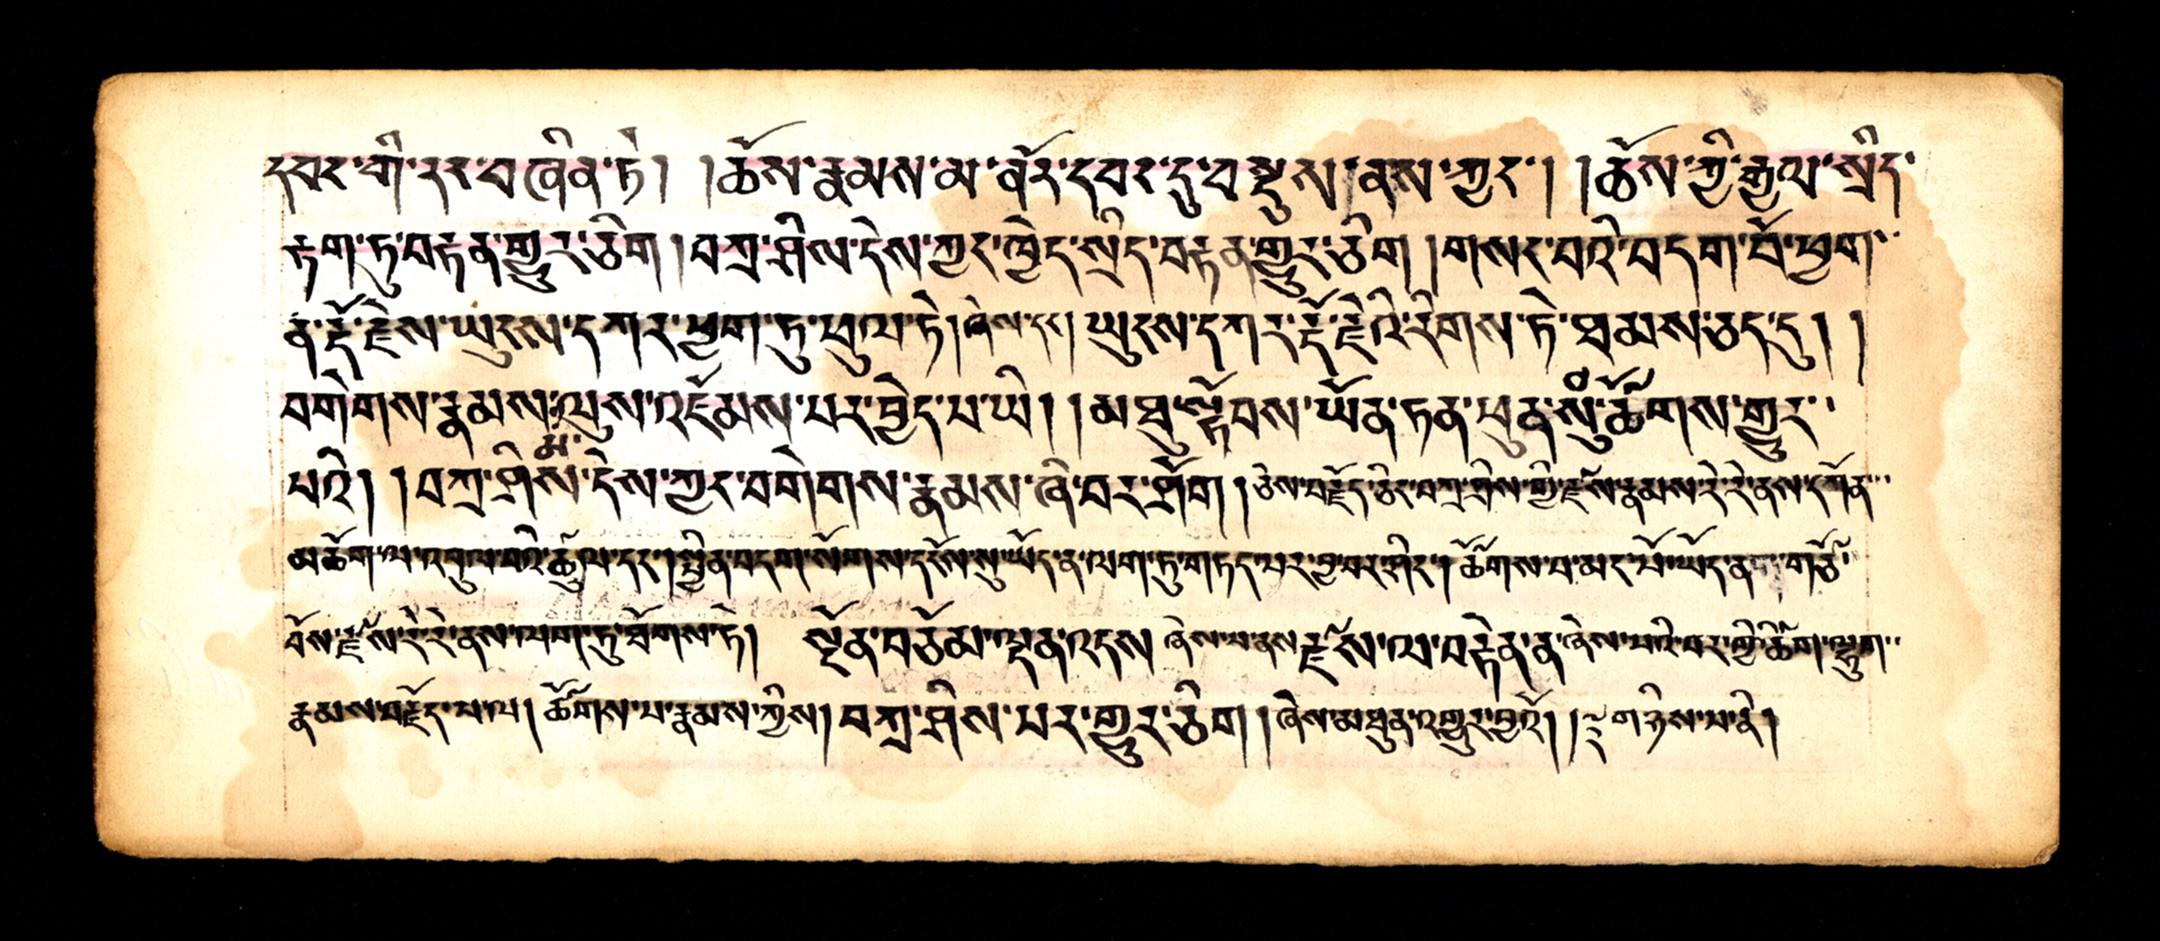 དབང་གི་རང་བཞིན་ཏེ། །ཆོས་རྣམས་མ་ནོར་དབང་དུ་བསྡུས་ནས་ཀྱང་། །ཆོས་ཀྱི་རྒྱལ་སྲིད་
རྟག་ཏུ་བརྟན་གྱུར་ཅིག །བཀྲ་ཤིས་དེས་ཀྱང་ཁྱེད་སྲིད་བརྟན་གྱུར་ཅིག །གསང་བའི་བདག་པོ་ཕྱག་
ན་རྡོ་རྗེས་ཡུངས་དཀར་ཕྱག་ཏུ་ཕུལ་ཏེ། ཞེས་དང་། ཡུངས་དཀར་རྡོ་རྗེའི་རིགས་ཏེ་ཐམས་ཅད་དུ། །
བགེགས་རྣམས་ལུས་འཇོམས་པར་བྱེད་པ་ཡི། །མཐུ་སྟོབས་ཡོན་ཏན་ཕུན་སུཾ་ཚོགས་གྱུར་
པའི། །བཀྲ་ཤིས་དེས་ཀྱང་བགེགས་རྣམས་ཞི་བར་ཤོག །ཅེས་བརྗོད་ཅིང་བཀྲ་ཤིས་ཀྱི་རྫས་རྣམས་རེ་རེ་ནས་དཀོན་
མཆོག་ལ་འབུལ་བའི་ཚུལ་དང་། སྦྱིན་བདག་སོགས་དངོས་སུ་ཡོད་ན་ལག་ཏུ་གཏད་པར་བྱ་བར་ཤིང་། ཚོགས་པ་མང་པོ་ཡོད་ན་གཙོ་
བོས་རྫས་རེ་རེ་ནས་ལག་ཏུ་ཐོགས་ཏེ། སྔོན་བཅོམ་ལྡན་འདས། ཞེས་པ་ནས་རྫས་ལ་བརྟེན་ན་ཞེས་པའི་བར་ཀྱི་ཚིག་ལྷུག་
རྣམས་བརྗོད་པ་ལ། ཚོགས་པ་རྣམས་ཀྱིས། བཀྲ་ཤིས་པར་གྱུར་ཅིག །ཞེས་མཐུན་འགྱུར་བྱའོ། །གཉིས་པ་ནི།